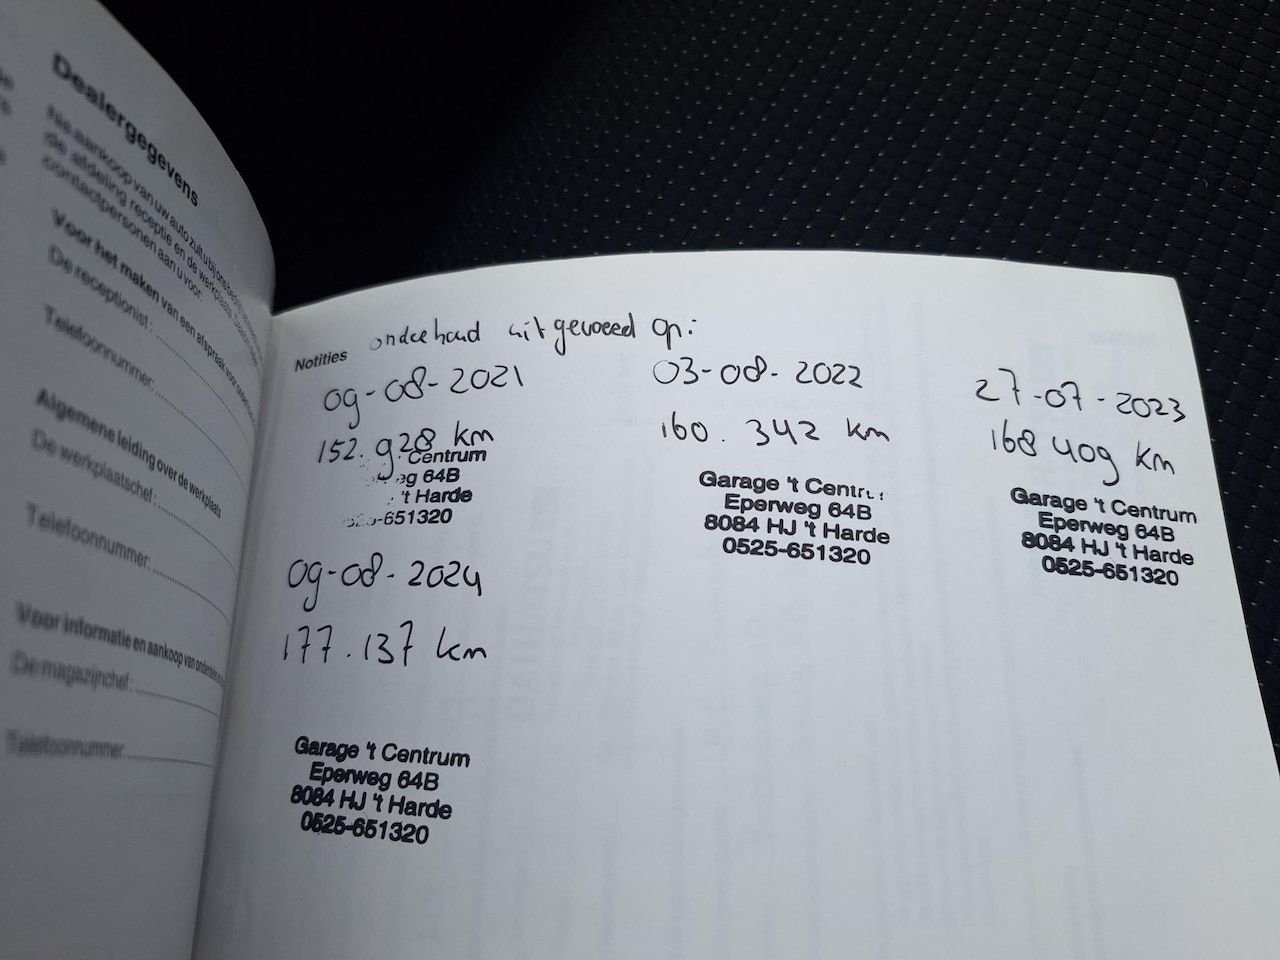 Dealergegevens
Na aankoop van uw auto zult u bij ons bedrijf
de afdeling receptie en de werkplaats.
contactpersonen aan u voor:
Voor het maken van een afspraak voor
De receptionist:
Telefoonnummer:
Algemene leiding over de werkplaats
De werkplaatschef:
Telefoonnummer:
Voor informatie en aankoop van
De magazijnchef:
Telefoonnummer
Notities
onderhoud uitgevoerd op:
09-08-2021
152.928 km
Centrum
eg 64B
't Harde
-651320
03-08-2022
160.342 km
Garage 't Centr
Eperweg 64B
8084 HJ 't Harde
0525-651320
27-07-2023
168 409 km
Garage 't Centrum
Eperweg 64B
8084 HJ 't Harde
0525-651320
09-08-2024
177.137 km
Garage 't Centrum
Eperweg 64B
8084 HJ 't Harde
0525-651320